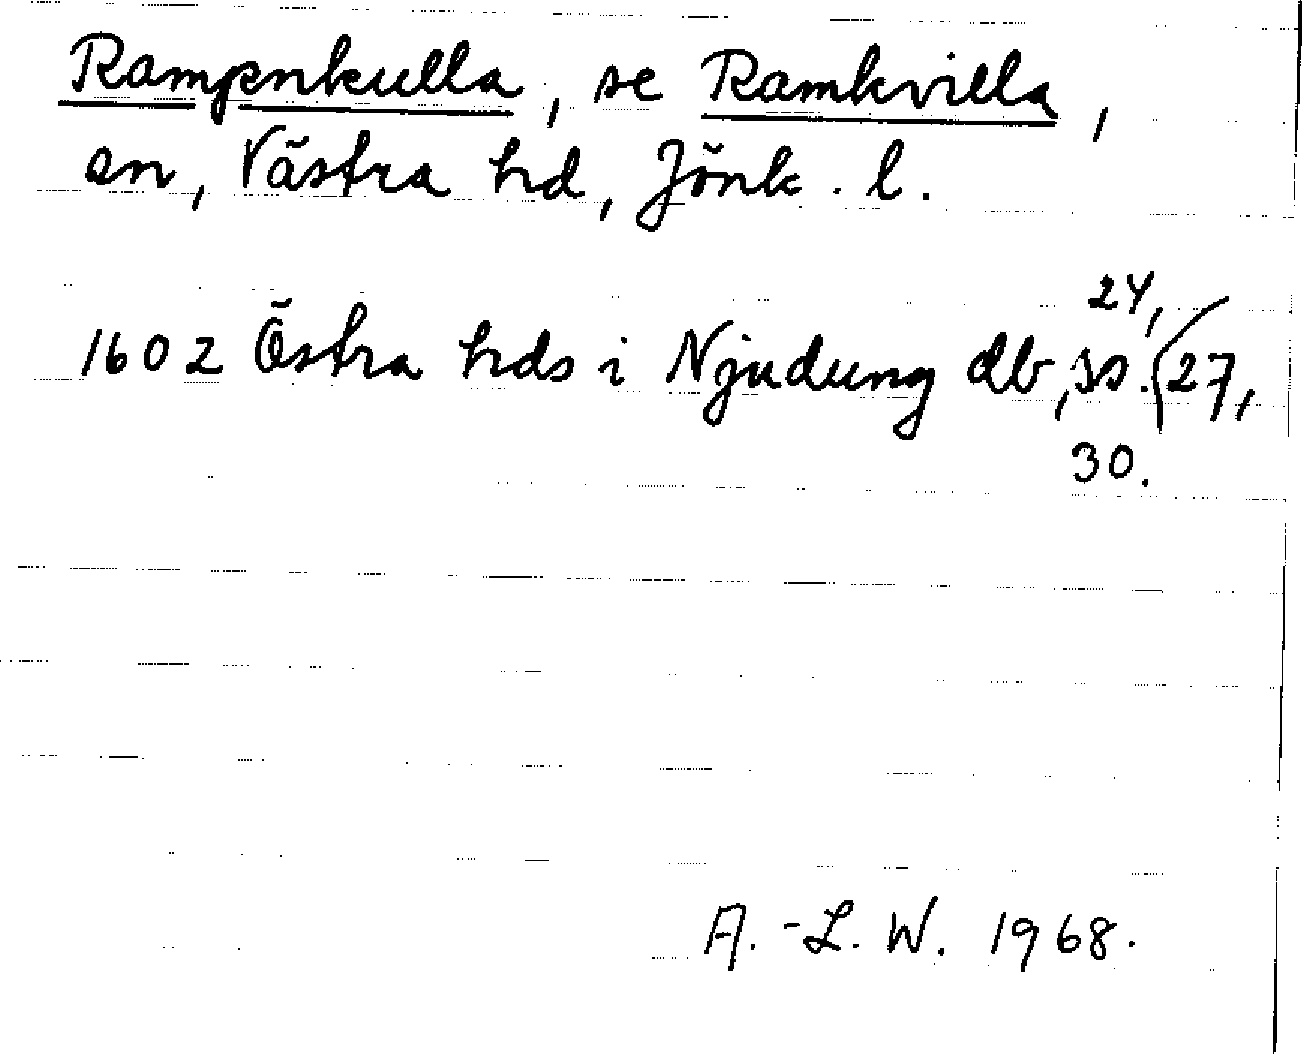 Rampnkulla, se Ramkvilla,
sn, Västra hd, Jönk. l.
1602 Östra hds i Njudung db, ss. 24, 27,
30.
A.-L. W. 1968.